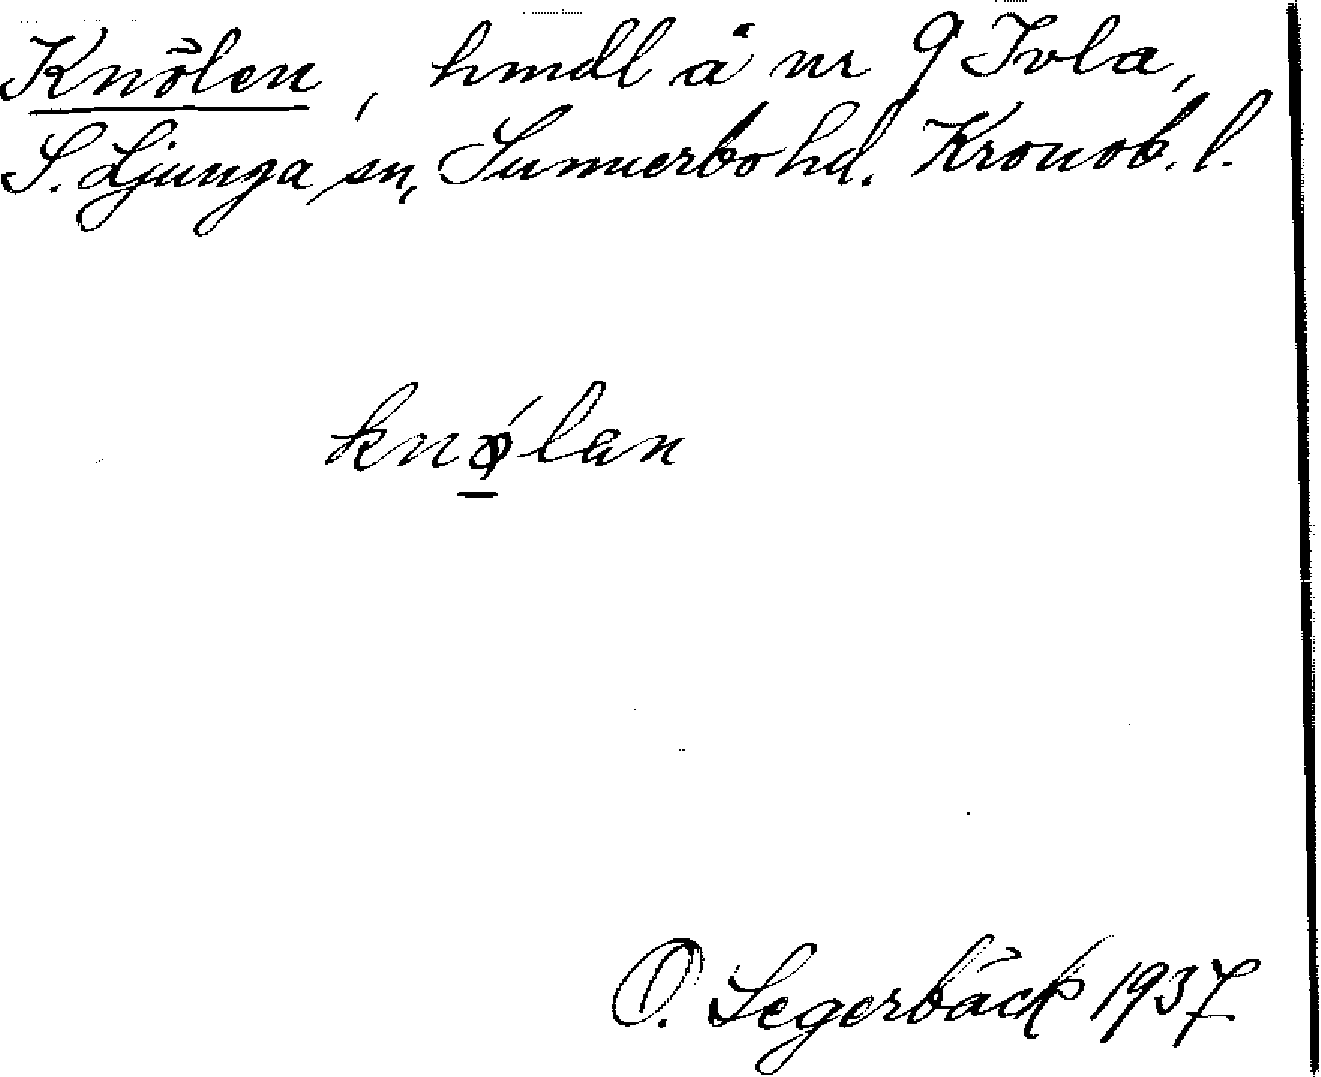 Knölen, hmdl å nr 9 Ivla,
S. Ljunga sn, Sunnerbo hd. Kronob. l.
knǿlan
O. Segerbäck 1937